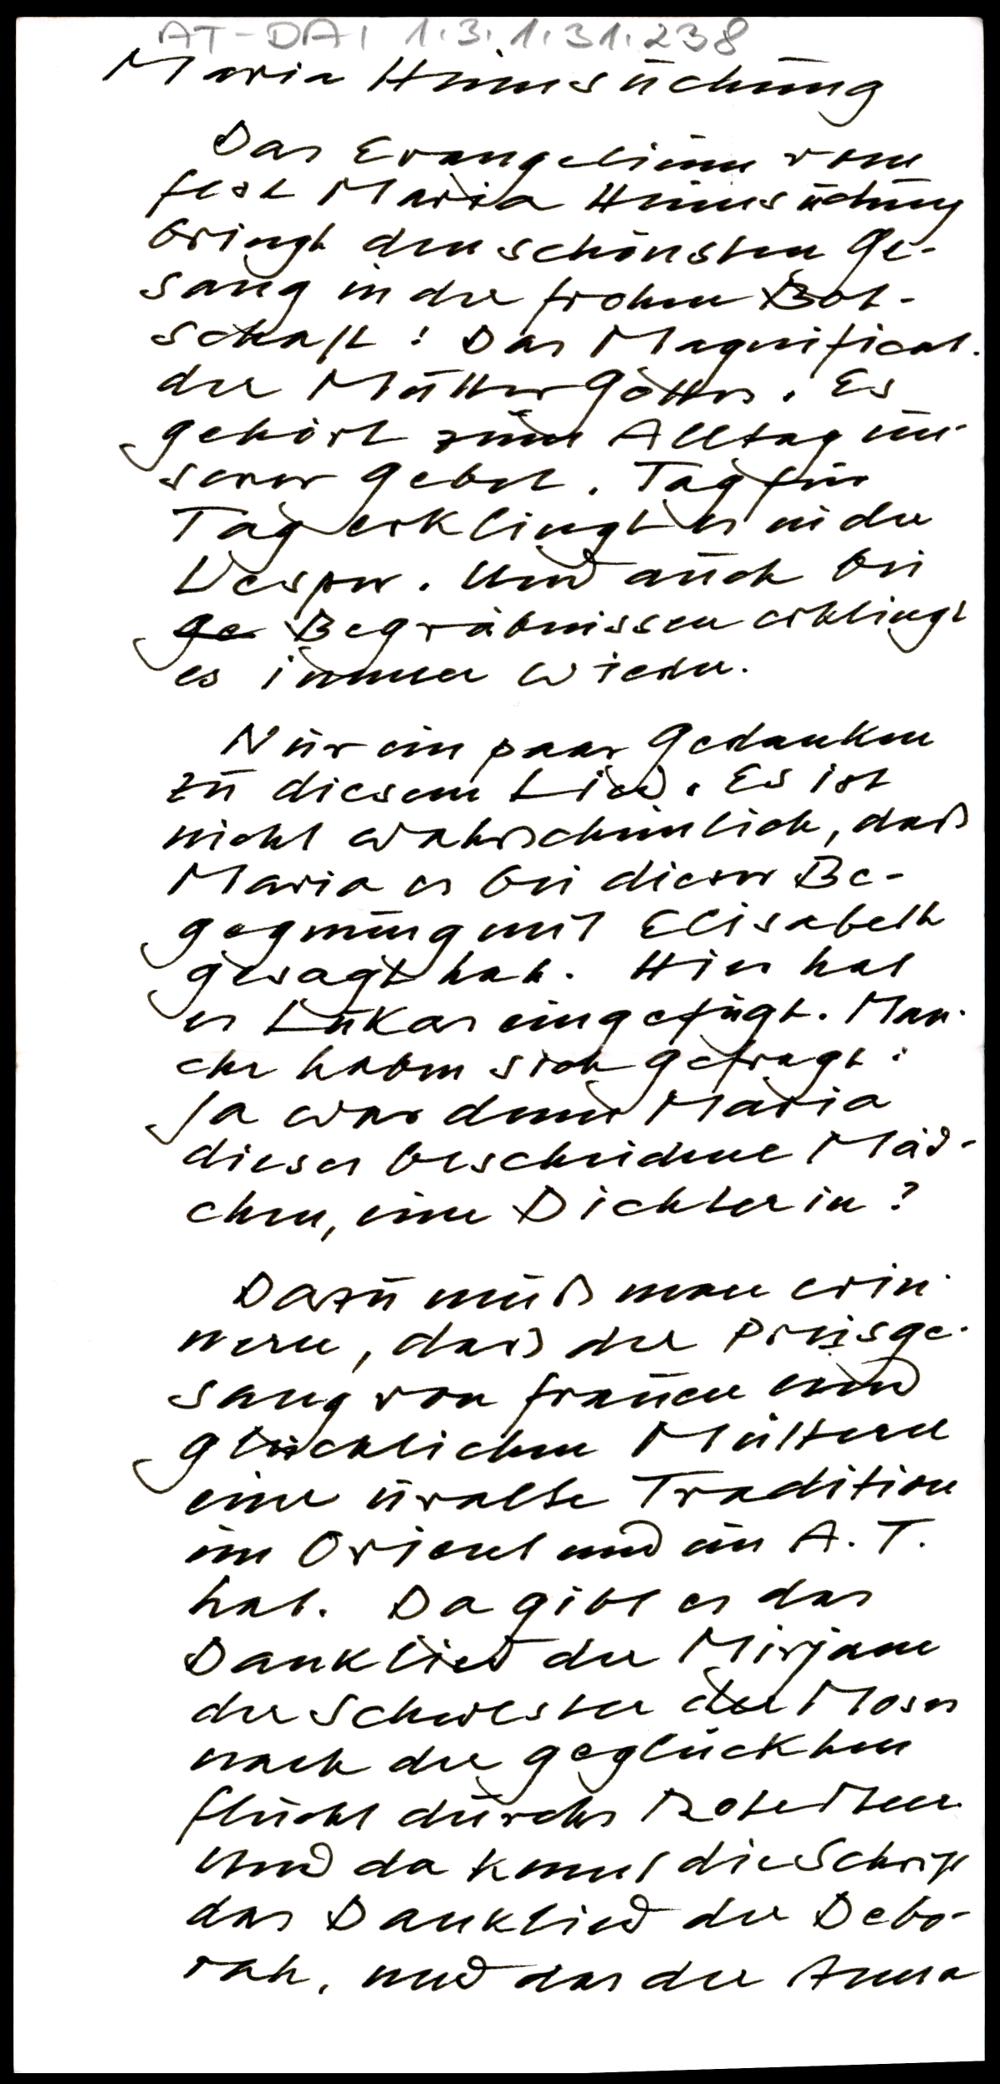 AT-DAI 1.3.1.31.238
Maria Heimsuchung
Das Evangelium vom
Fest Maria Heimsuchung
bringt den schönsten Ge-
sang in der frohen Bot-
schaft: Das Magnificat
der Mutter Gottes. Es
gehört zum Alltag un-
serer Gebet. Tag für
Tag erklingt es in der
Vesper. Und auch bei
Ge Begräbnissen erklingt
es immer wieder.
Nur ein paar Gedanken
zu diesem Lied. Es ist
nicht wahrscheinlich, daß
Maria es bei dieser Be-
gegnung mit Elisabeth
gesagt hat. Hier hat
es Lukas eingefügt. Man-
che haben sich gefragt:
Ja war denn Maria
dieses bescheidene Mäd-
chen, eine Dichterin?
Dazu muß man erin-
nern, daß der Preisge-
sang von Frauen und
glücklichen Müttern
eine uralte Tradition
im Orient und im A. T.
hat. Da gibt es das
Danklied der Mirjam
der Schwester des Moses
nach der geglückten
Flucht durchs Rote Meer.
Und da kennt die Schrift
das Danklied der Debo-
rah, und das der Anna